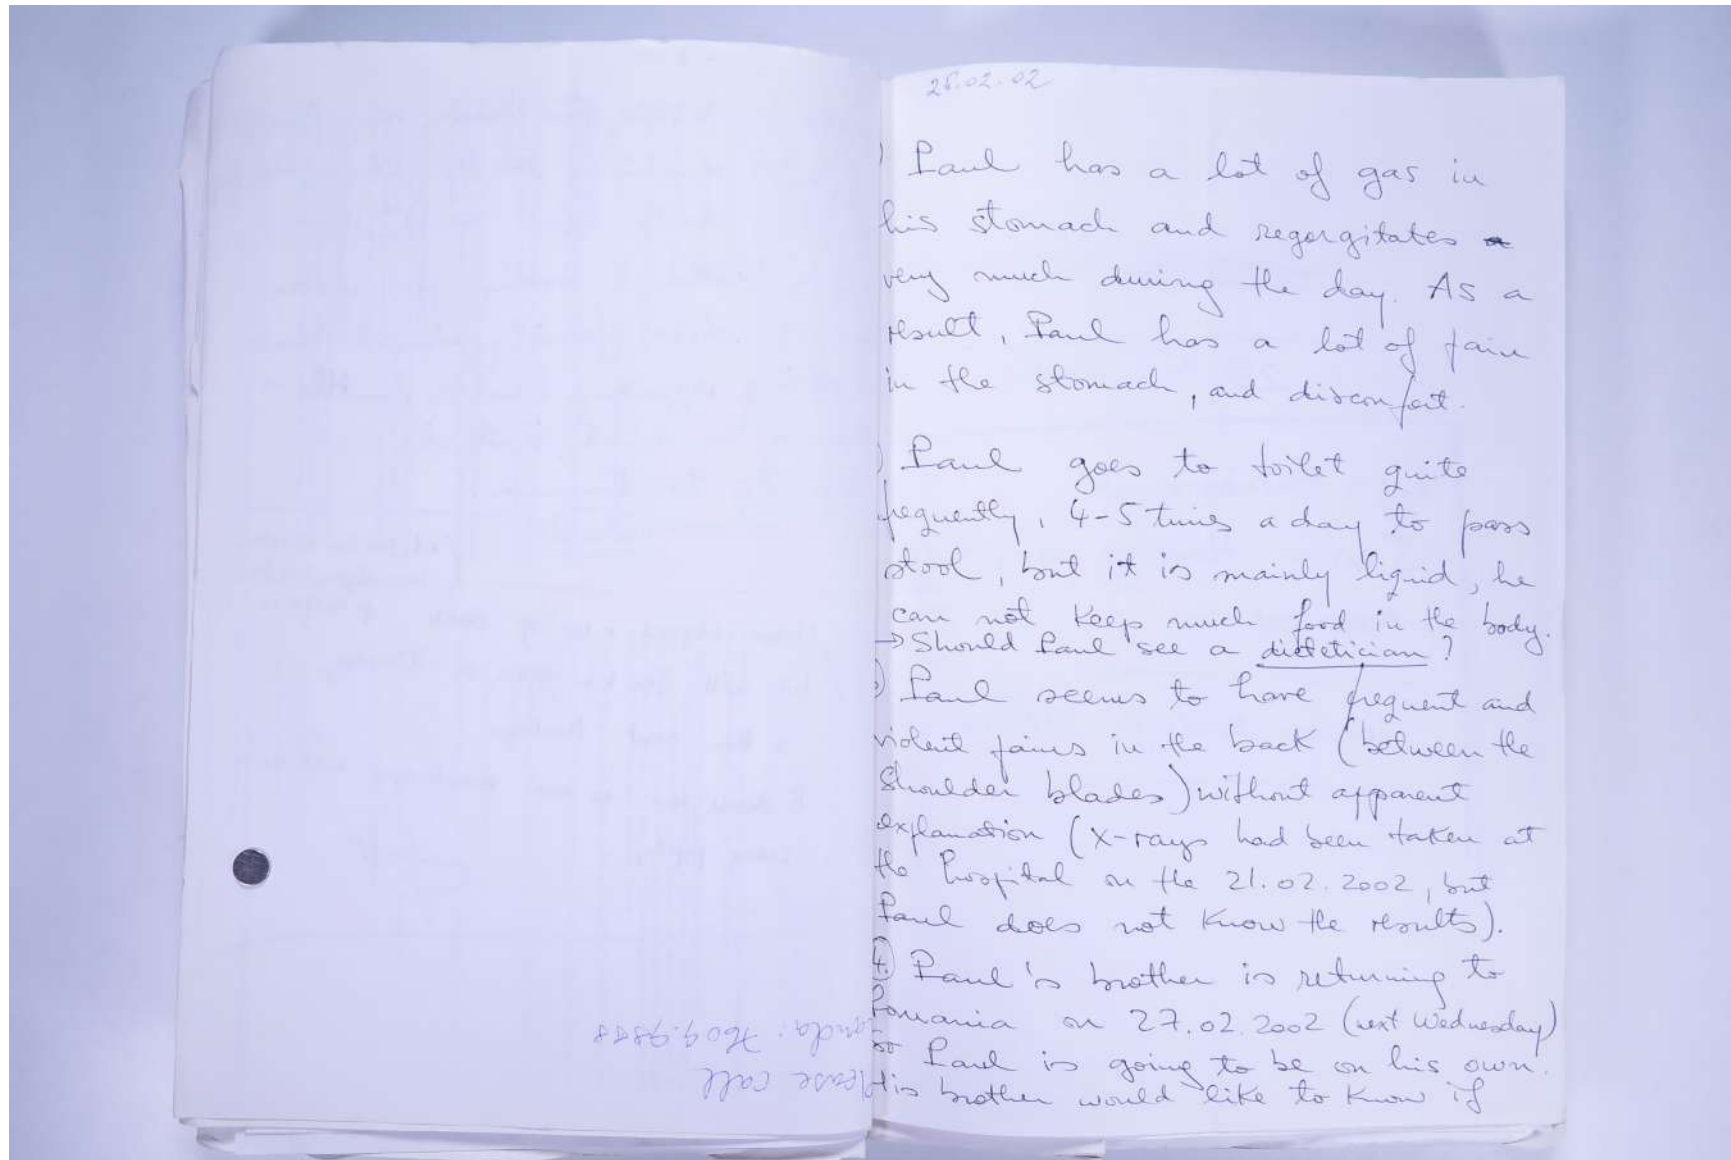 ) Paul has a lot of gas in
his stomach and regorgitates
very much during the day. As a
result, Paul has a lot of pain
in the stomach, and disconfort.
) Paul goes to toilet quite
frequently, 4-5 times a day to pass
stool, but it is mainly liquid, he
can not keep much food in the body.
→ Should Paul see a dietetician?
) Paul seems to have frequent and
violent pains in the back (between the
shoulder blades) without apparent
explanation (X-rays had been taken at
the hospital on the 21.02.2002, but
Paul does not know the results).
4.) Paul's brother is returning to
Romania on 27.02.2002 (next Wednesday)
so Paul is going to be on his own.
His brother would like to know if
Please call